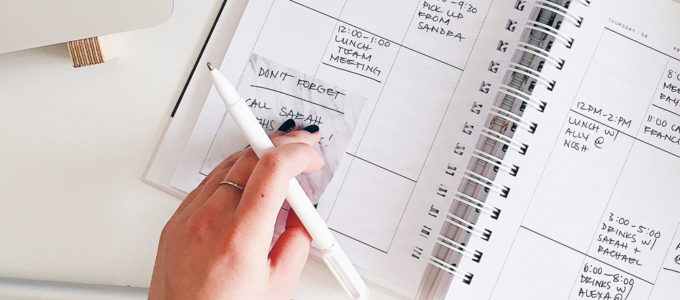 PICK UP
FROM
SANDRA
12:00-1:00
LUNCH
TEAM
MEETING
DON'T FORGET
CALL SARAH
THURSDAY: 04
12PM-2PM
LUNCH W/
ALLY @
NOSH
3:00-5:00
DRINKS W/
SARAH +
RACHAEL
6:00-8:00
DRINKS W/